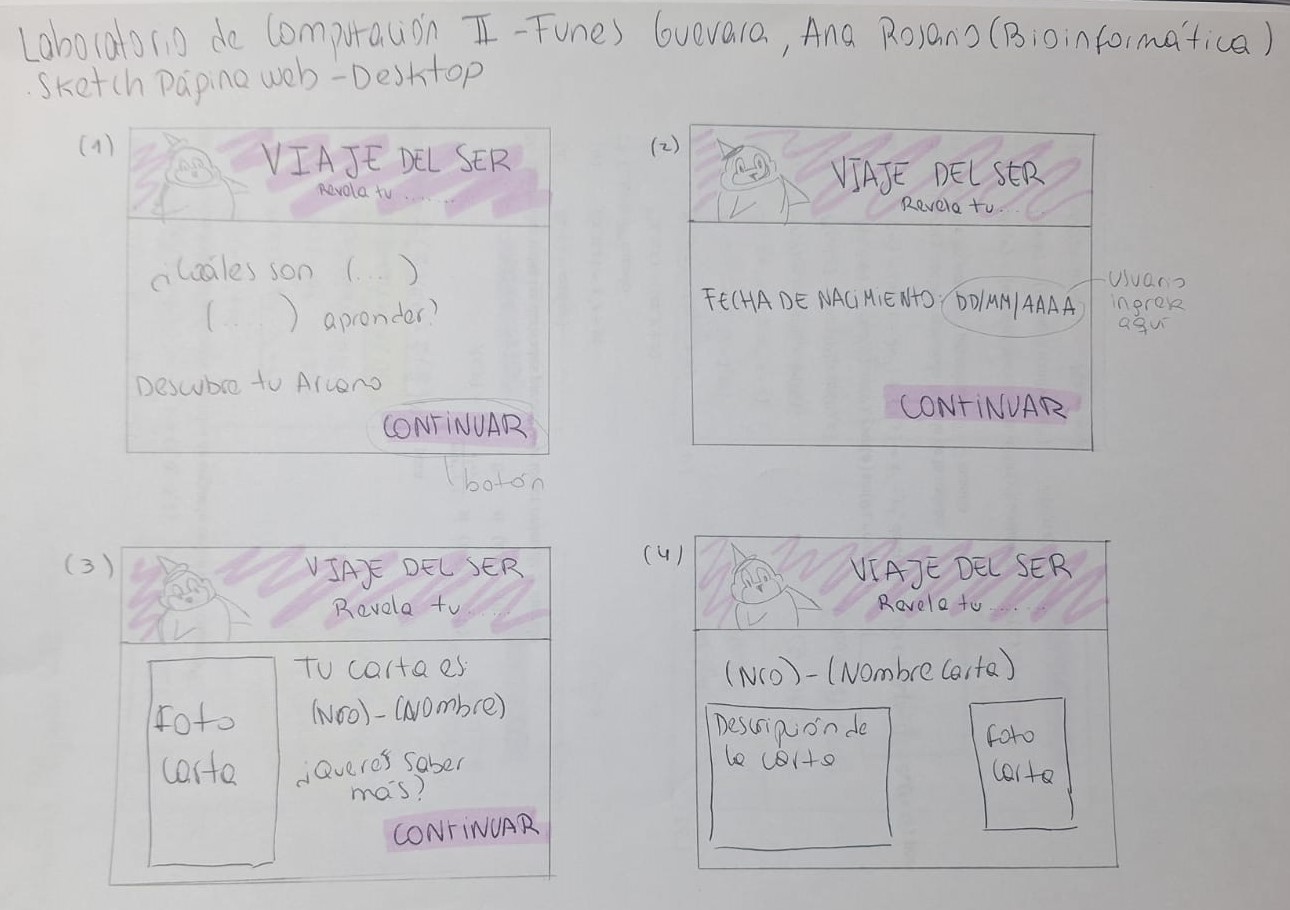 Laboratorio de Computación II - Funes Guevara, Ana Rosario (Bioinformática)
. Sketch Página web - Desktop
(1)
VIAJE DEL SER
Revela tu .......
¿Cuáles son (....)
(....) aprender?
Descubre tu Arcano
CONTINUAR
botón
(2)
VIAJE DEL SER
Revela tu ...
FECHA DE NACIMIENTO: DD/MM/AAAA
Usuario
ingresa
aquí
CONTINUAR
(3)
VIAJE DEL SER
Revela tu ......
Foto
Carta
Tu carta es:
(Nro) - (Nombre)
¿Querés saber
más?
CONTINUAR
(4)
VIAJE DEL SER
Revela tu ......
(Nro) - (Nombre Carta)
Descripción de
la carta
Foto
Carta